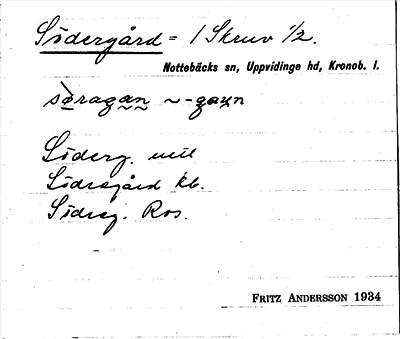 Södergård = / Skruv 1/2.
Nottebäcks sn, Uppvidinge hd, Kronob. l.
søragan ~-gaɳn
Söderg. utl
Södregård kb.
Södreg. Ros.
FRITZ ANDERSSON 1934